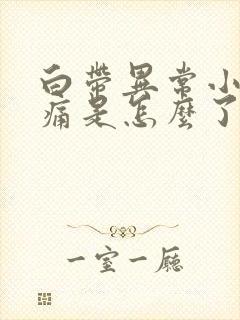 白帶異常小
痛是怎麼了
一室一廳